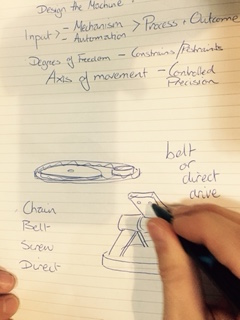 Design the Machine
Input > - Mechanism > Process + Outcome
- Automation
Degrees of Freedom - Constrains/Restraints
Axis of movement - Controlled
Precision
belt
or
direct
drive
Chain
Belt
Screw
Direct